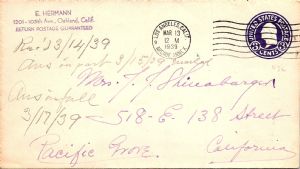 E. HERMANN
1201-103th Ave., Oakland, Calif.
RETURN POSTAGE GUARANTEED
LOS ANGELES, CALIF.
MAR 13
12 M
1939
UNITED STATES POSTAGE
3 CENTS 3
Rec'd 3/14/39
Ans in part 3/15/39
Mrs. T. J. Shinabarger
Ans in full
3/17/39
518-E. 138 Street
Pacific Grove.
California